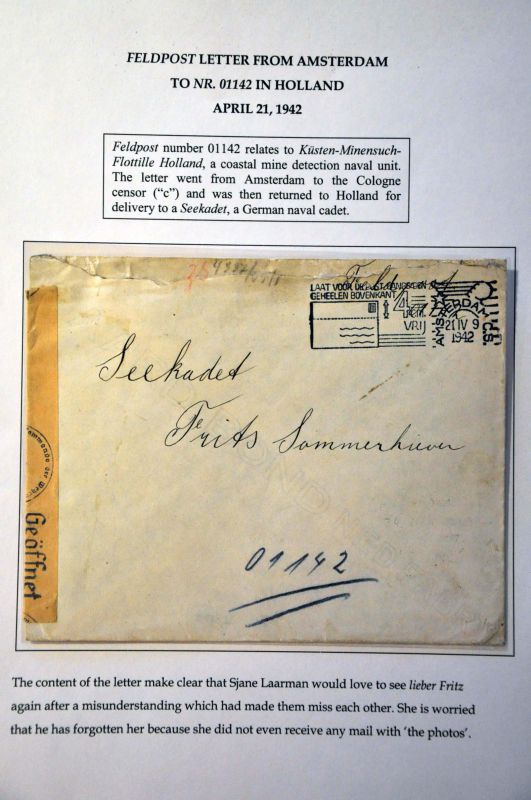 FELDPOST LETTER FROM AMSTERDAM
TO NR. 01142 IN HOLLAND
APRIL 21, 1942
Feldpost number 01142 relates to Küsten-Minensuch-
Flottille Holland, a coastal mine detection naval unit.
The letter went from Amsterdam to the Cologne
censor ("c") and was then returned to Holland for
delivery to a Seekadet, a German naval cadet.
Feldpost
LAAT VOOR
GEHEELEN BOVENKANT
4 c.M.
VRIJ
AMSTERDAM
21 IV 9
1942
Seekadet
Frits Sommerhiever
01142
Geöffnet
The content of the letter make clear that Sjane Laarman would love to see lieber Fritz
again after a misunderstanding which had made them miss each other. She is worried
that he has forgotten her because she did not even receive any mail with 'the photos'.